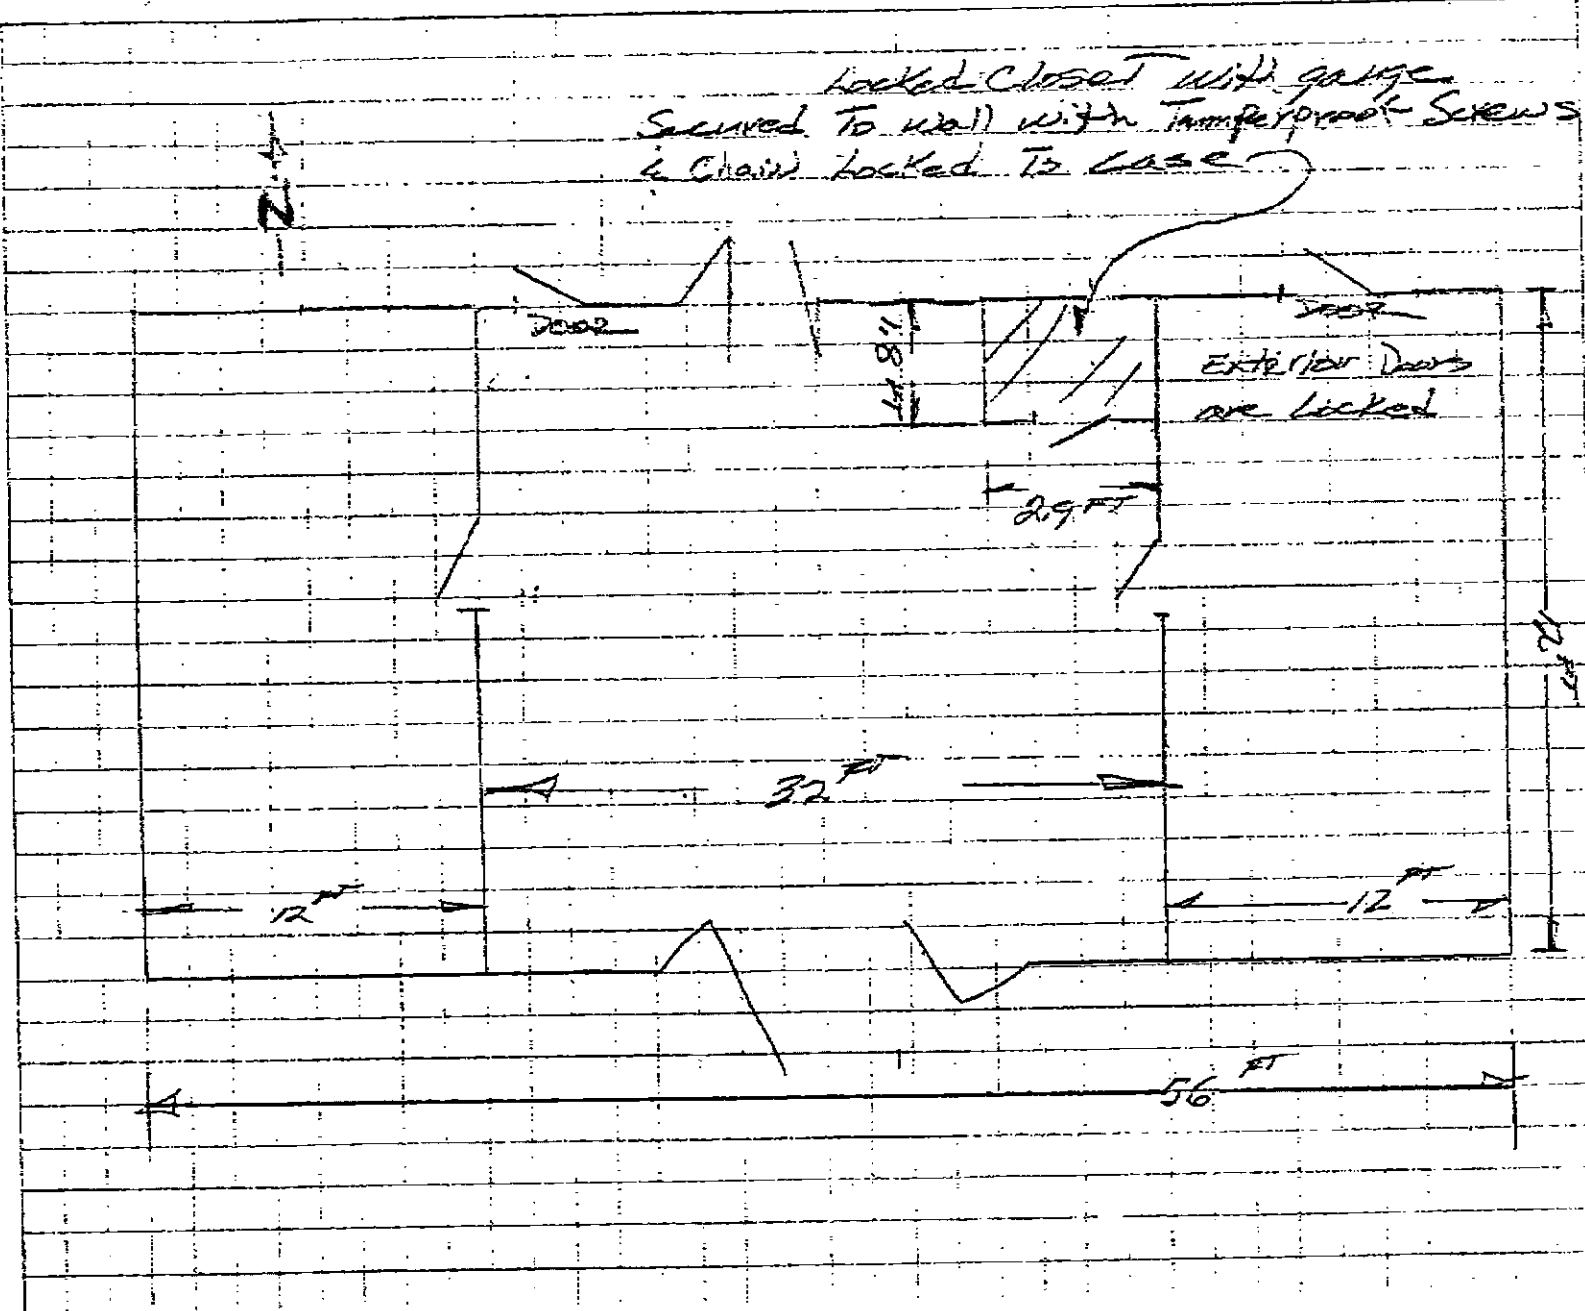 Locked Closet with gauge
Secured To wall with Tamperproof Screws
& Chain Locked To Case
N
DOOR
DOOR
1.8 FT
Exterior Doors
are Locked
2.9 FT
12 FT
32 FT
12 FT
12 FT
56 FT